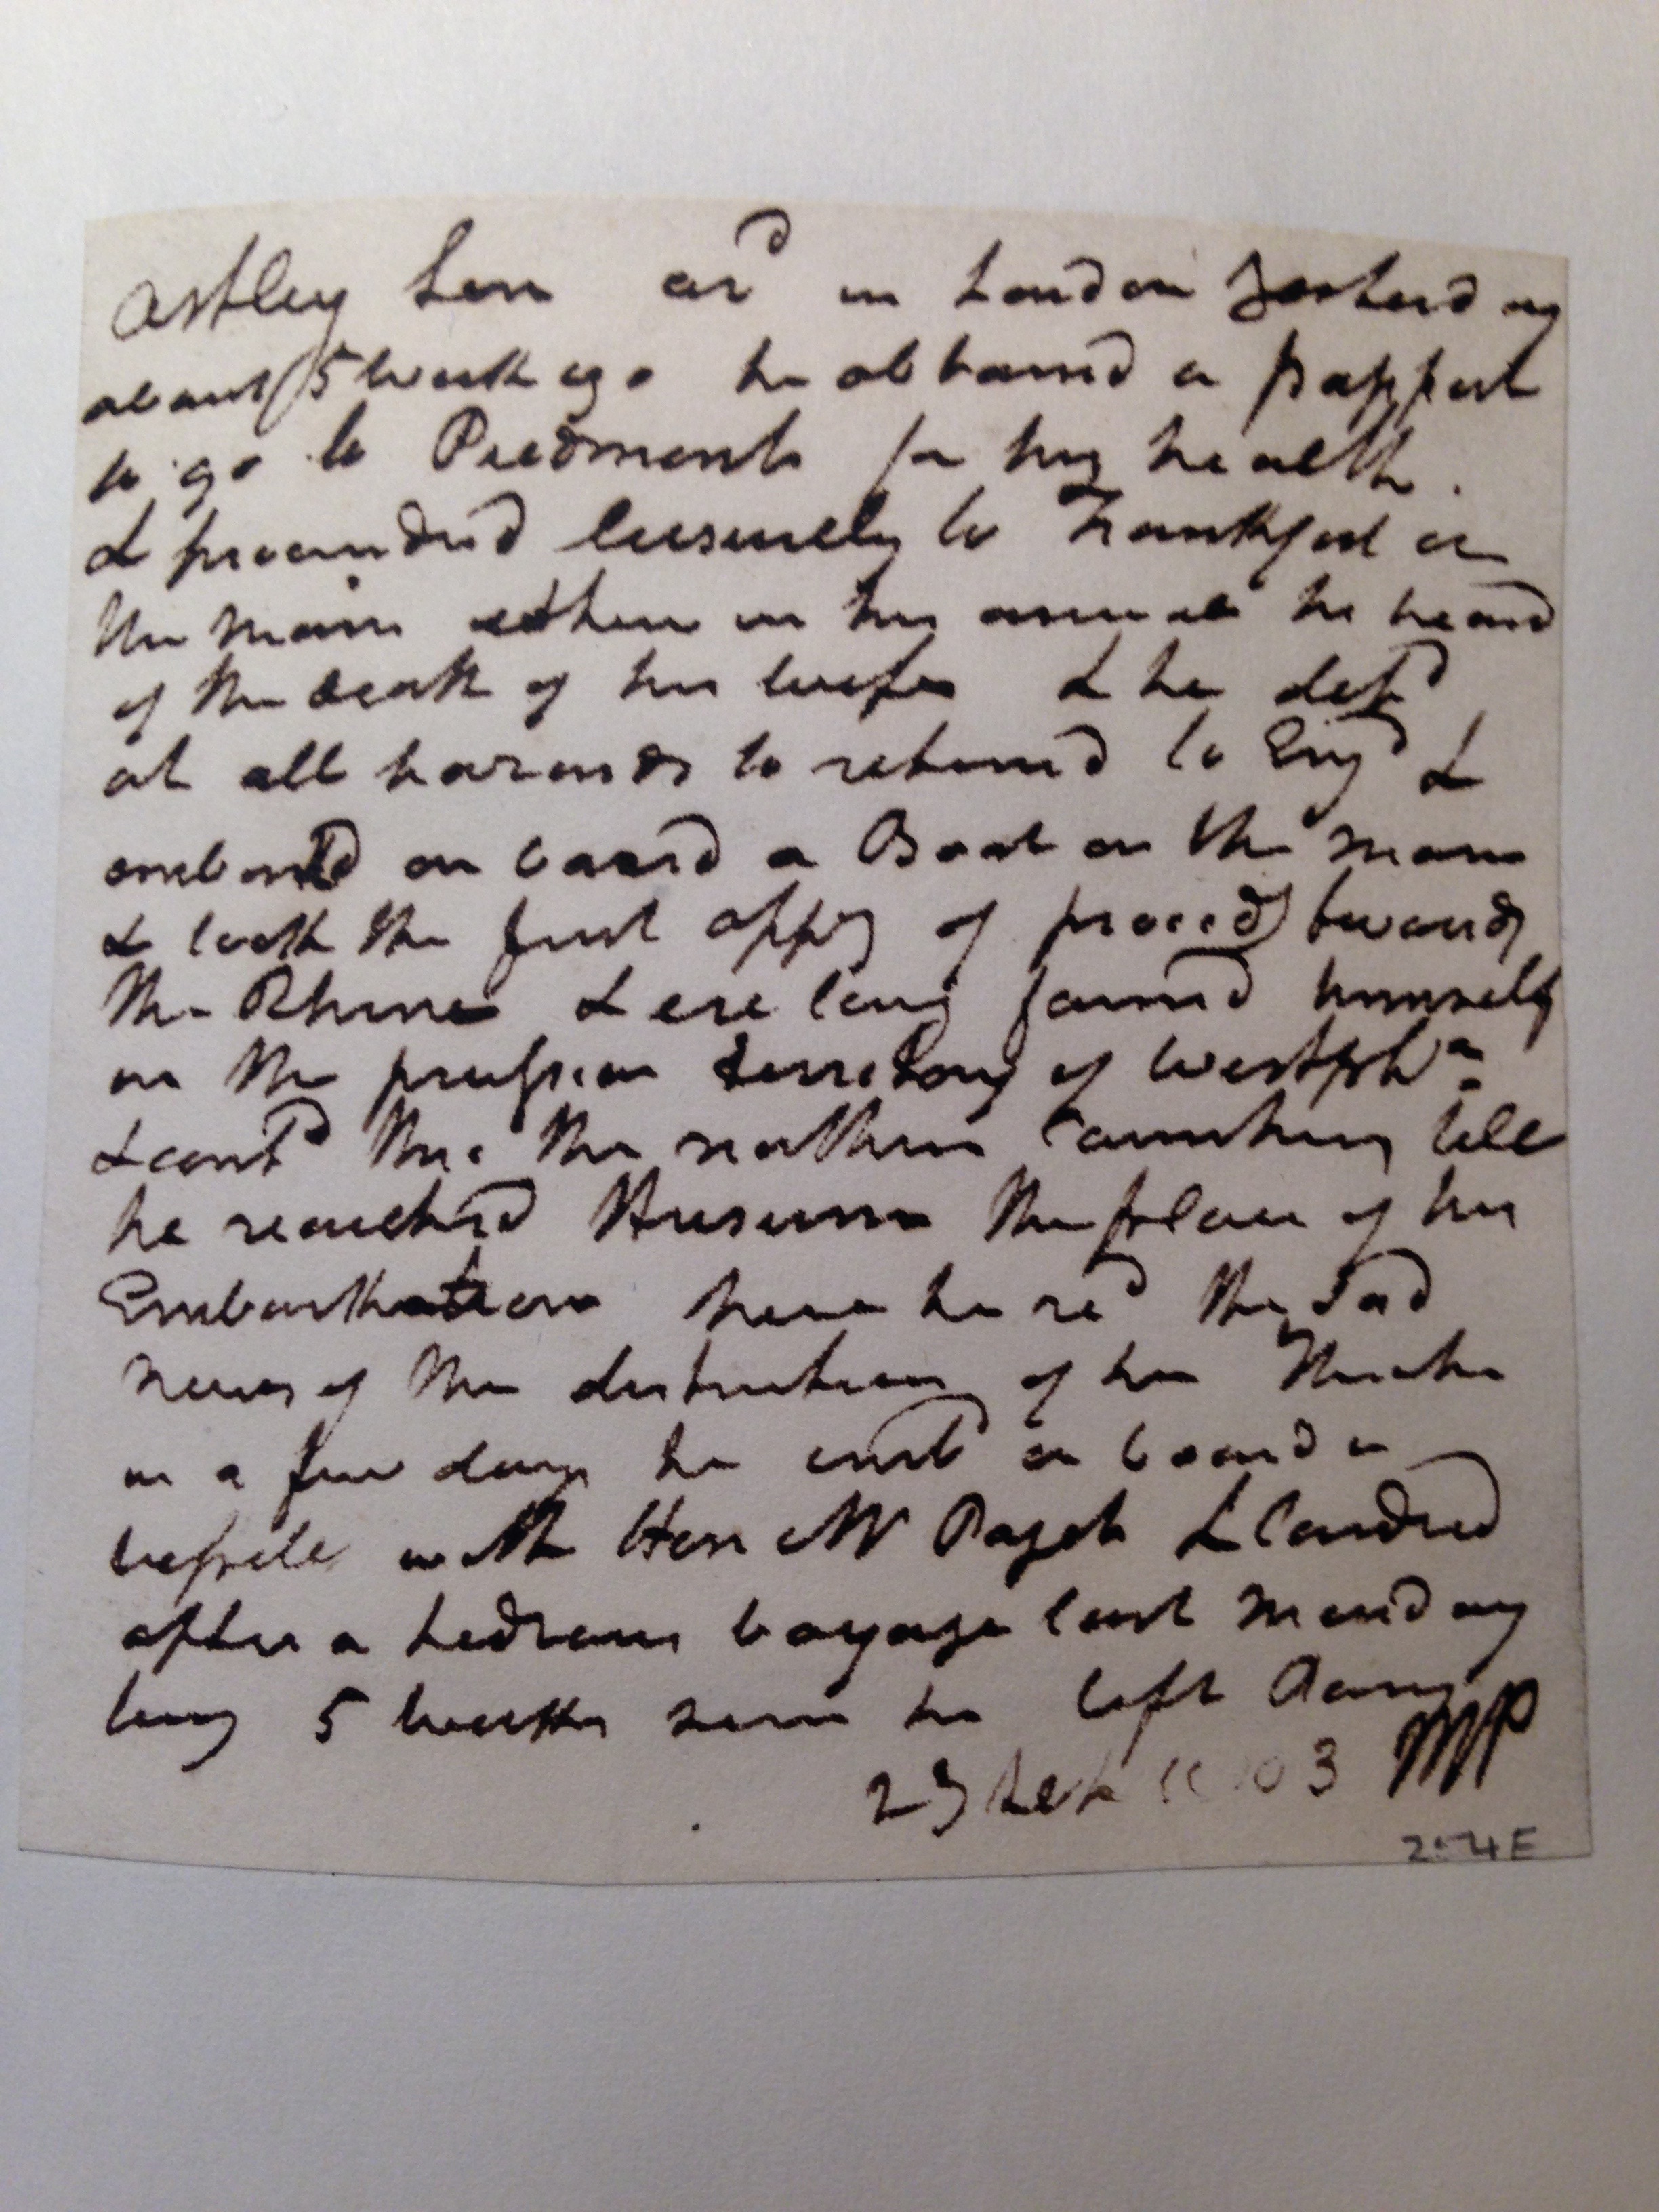 Astley Sen ar^d in London Yesterday
about 5 week ago he obtained a passport
to go to Piedmont for his health.
& proceeded leisurely to Frankfort on
the Main where on his arrival he heard
of the death of his wife & he det^d
at all hazards to returned to Eng^d &
embark'd on board a Boat on the Main
& took the first oppy of proceedg towards
the Rhine & ere long found himself
in the prussian territory of Westph^a
& cont^d thro the northern Countrys till
he reached Husum the place of his
Embarkation here he re^d the Sad
news of the destruction of his Theatre
in a few days he emb^d on board a
vessele with Hon Mr Paget & landed
after a tedious voyage last Monday
being 5 weeks since he left Paris
23 Sep 1803 MP
254E